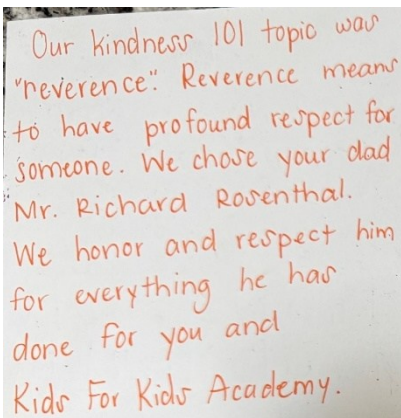 Our kindness 101 topic was
"reverence". Reverence means
to have profound respect for
someone. We chose your dad
Mr. Richard Rosenthal.
We honor and respect him
for everything he has
done for you and
Kids For Kids Academy.